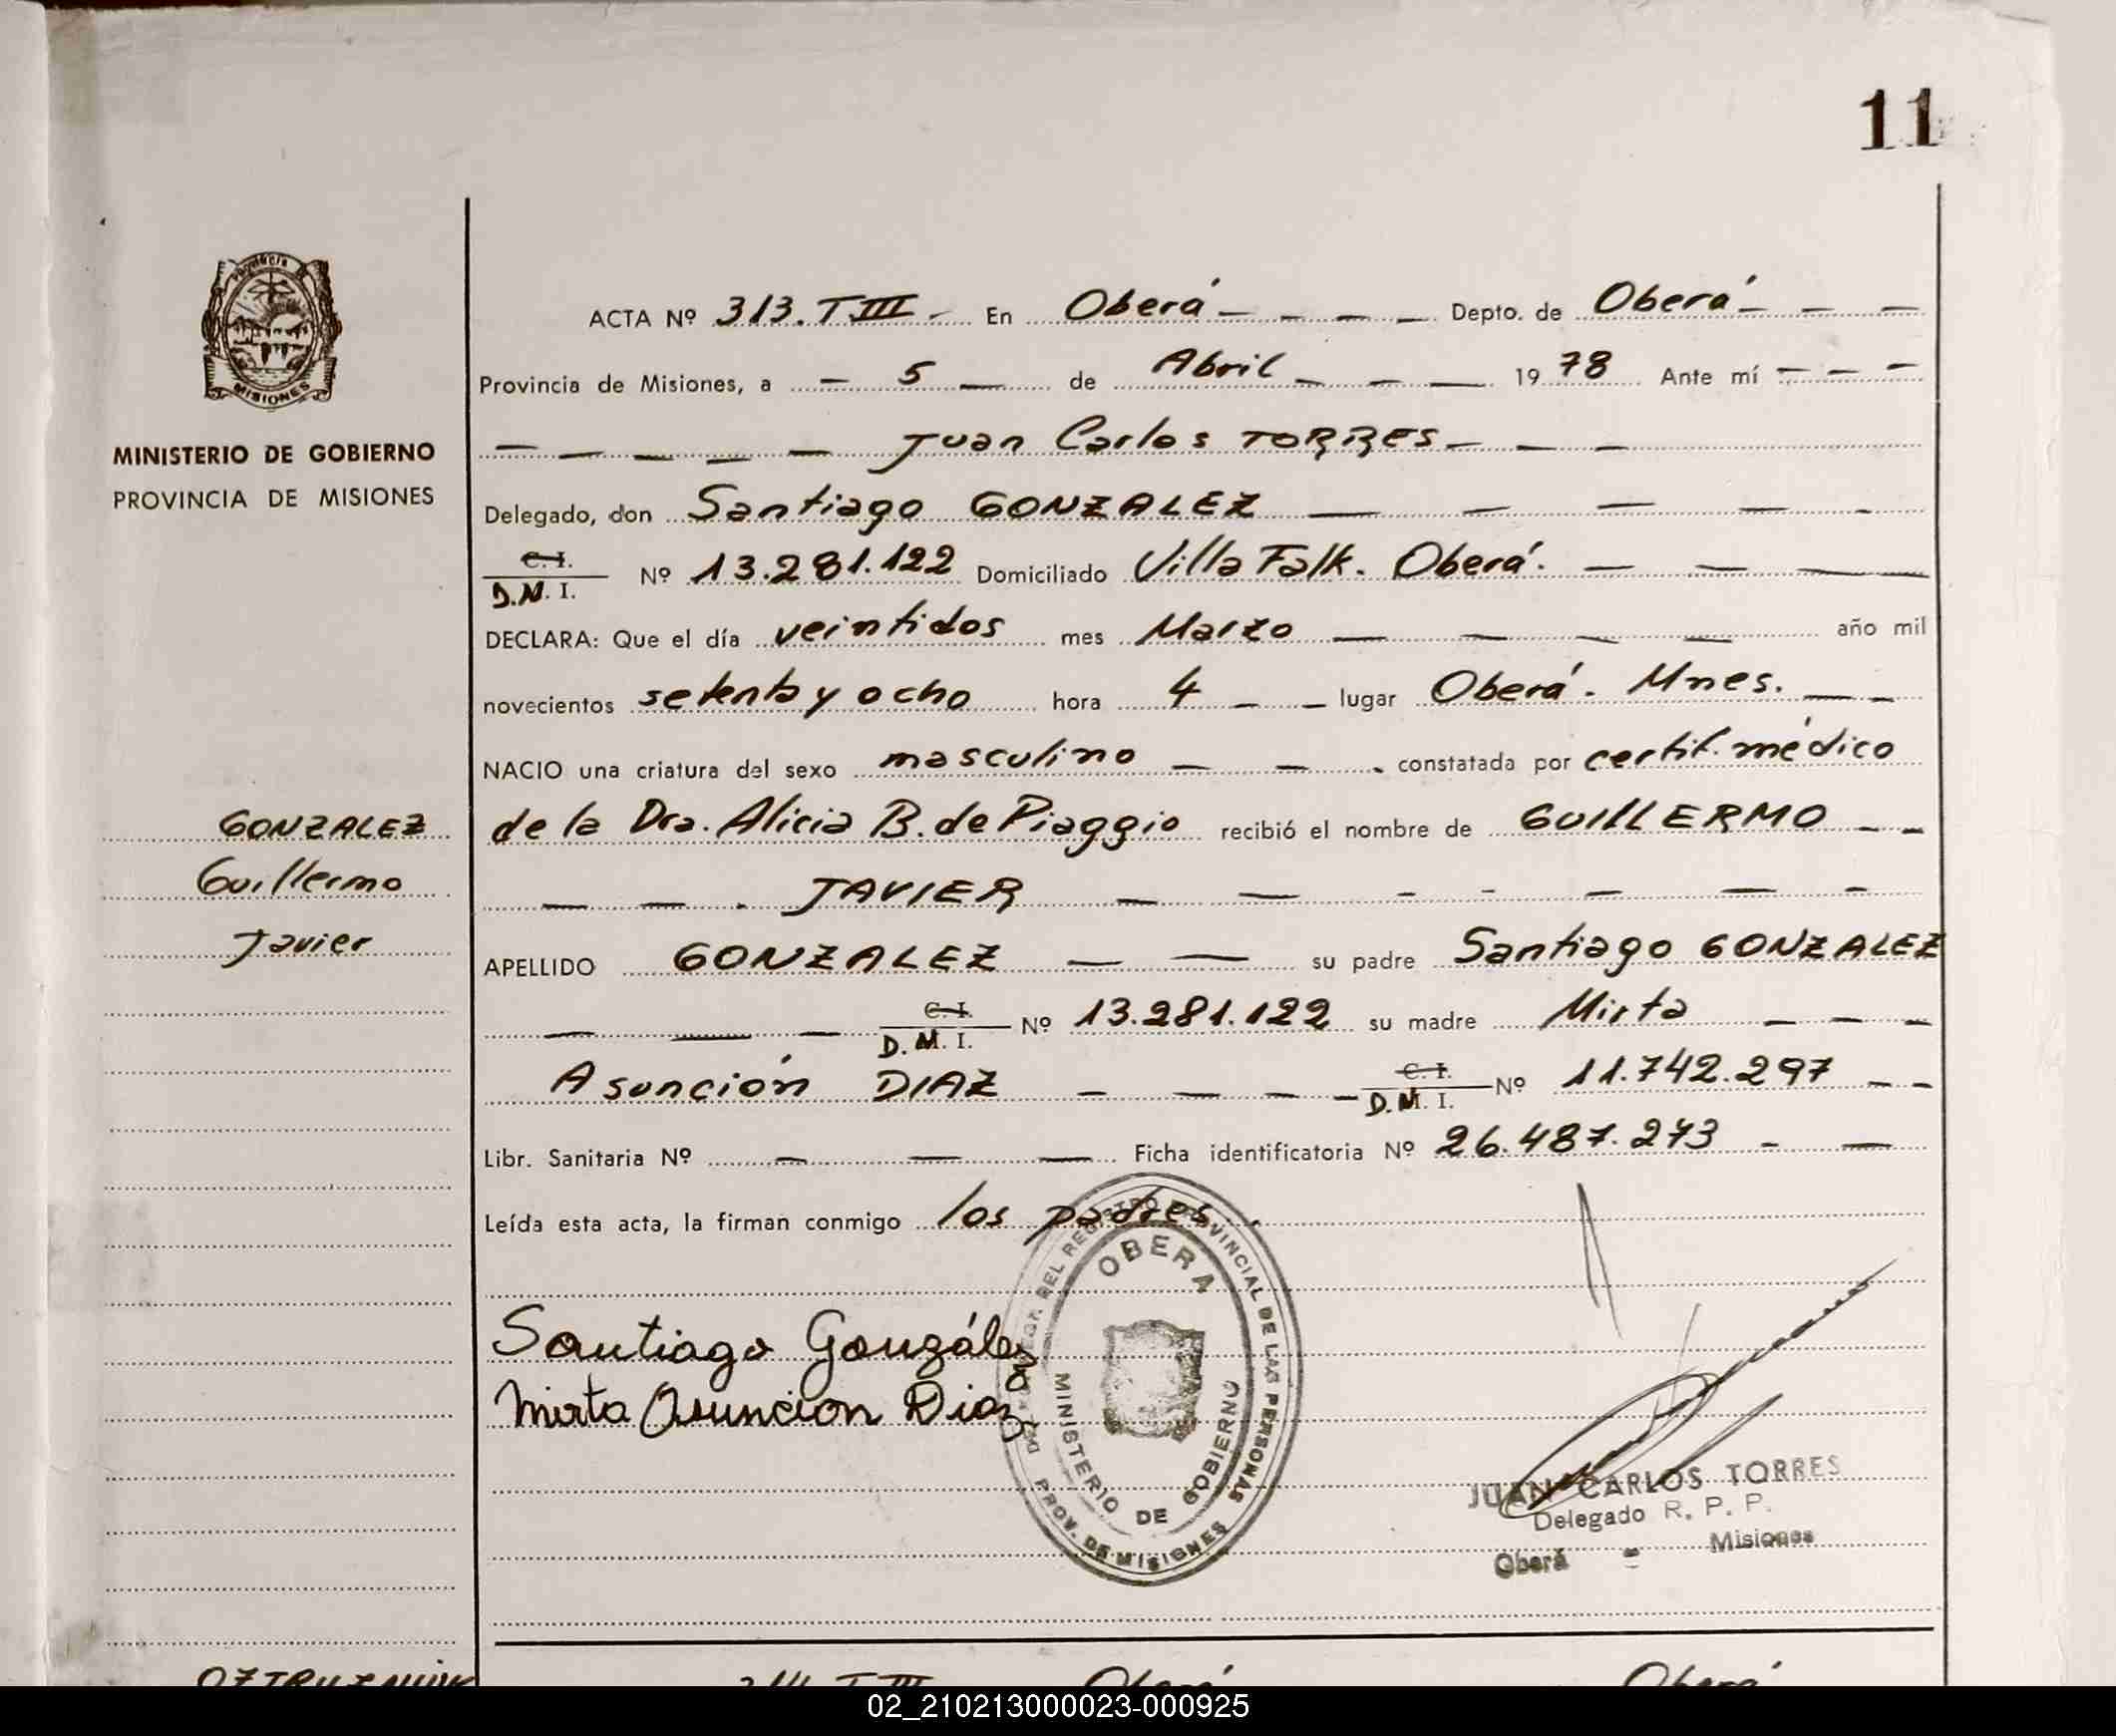 11
Provincia
MISIONES
MINISTERIO DE GOBIERNO
PROVINCIA DE MISIONES
GONZALEZ
Guillermo
Javier
ACTA Nº 313. T III - En Oberá — — — — Depto. de Oberá — — —
Provincia de Misiones, a — 5 — de Abril — — — 19 78 Ante mí — — —
— — — — — Juan Carlos TORRES — — —
Delegado, don Santiago GONZALEZ — — — — -
C.I. D.N.I. Nº 13.281.122 Domiciliado Villa Falk. Oberá. — — —
DECLARA: Que el día veintidos mes Marzo — — — — año mil
novecientos setenta y ocho hora 4 — — lugar Oberá. Mnes. — —
NACIO una criatura del sexo masculino — — - constatada por certif. médico
de la Dra. Alicia B. de Piaggio recibió el nombre de GUILLERMO — —
— — - JAVIER — — - - — — -
APELLIDO GONZALEZ — — su padre Santiago GONZALEZ
— — — C.I. D.N.I. Nº 13.281.122 su madre Mirta — — —
Asunción DIAZ — — — — C.I. D.N.I. Nº 11.742.297 — —
Libr. Sanitaria Nº — — — Ficha identificatoria Nº 26.487.273 - —
Leída esta acta, la firman conmigo los padres.
Santiago González
Mirta Asuncion Diaz
DEL REGISTRO PROVINCIAL DE LAS PERSONAS
OBERA
MINISTERIO DE GOBIERNO
PROV. DE MISIONES
JUAN CARLOS TORRES
Delegado R. P. P.
Oberá - Misiones
314 T III Oberá Oberá
02_210213000023-000925